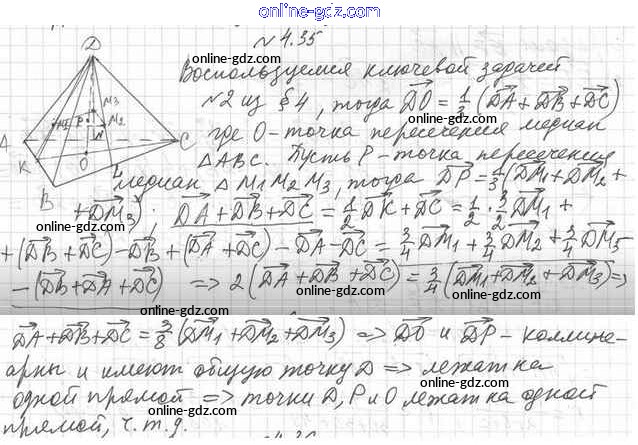 online-gdz.com
N 4.35
Воспользуемся ключевой задачей
N2 из §4, тогда DO = 1/3 (DA + DB + DC)
где O - точка пересечения медиан
△ABC. Пусть P - точка пересечения
медиан △M1M2M3, тогда DP = 1/3 (DM1 + DM2 +
+ DM3); DA + DB + DC = 1/2 DK + DC = 1/2 · 3/2 DM1 +
+ (DB + DC) - DB + (DA + DC) - DA - DC = 3/4 DM1 + 3/4 DM2 + 3/4 DM3
- (DB + DA + DC) => 2 (DA + DB + DC) = 3/4 (DM1 + DM2 + DM3) =>
DA + DB + DC = 3/8 (DM1 + DM2 + DM3) => DO и DP - коллине-
арны и имеют общую точку D => лежат на
одной прямой => точки D, P и O лежат на одной
прямой, ч.т.д.
D
M3
P
M2
N
A
K
O
C
B
L
online-gdz.com
online-gdz.com
online-gdz.com
online-gdz.com
online-gdz.com
online-gdz.com
online-gdz.com
online-gdz.com
online-gdz.com
online-gdz.com
online-gdz.com